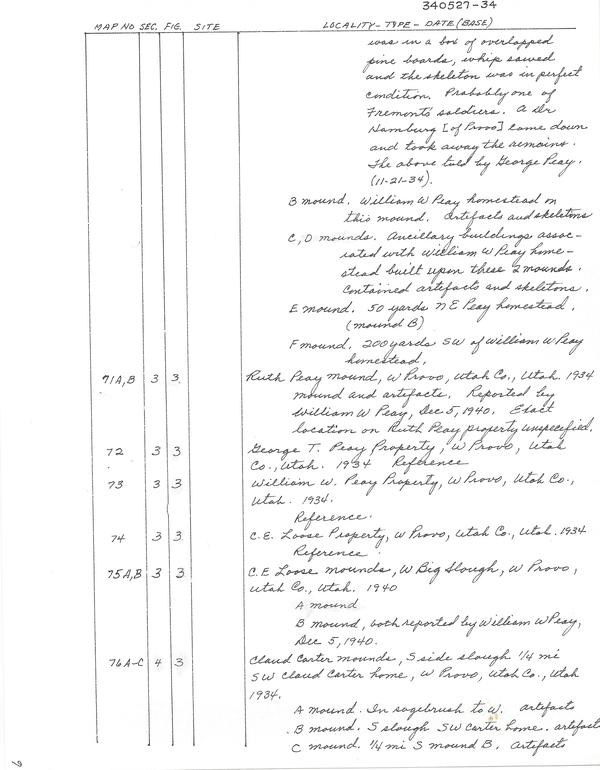 340527-34
MAP NO SEC. FIG. SITE LOCALITY - TYPE - DATE (BASE)
was in a box of overlapped
pine boards, whip sawed
and the skeleton was in perfect
condition. Probably one of
Fremont's soldiers. A Dr
Hamburg [of Provo] came down
and took away the remains.
The above told by George Peay.
(11-21-34).
B mound. William W Peay homestead on
this mound. Artifacts and skeletons
C, D mounds. Ancillary buildings assoc-
iated with William W Peay home-
stead built upon these 2 mounds.
Contained artefacts and skeletons.
E mound. 50 yards NE Peay homestead.
(mound B)
F mound. 200 yards SW of William W Peay
homestead.
71A,B 3 3 Ruth Peay mound, W Provo, Utah Co., Utah. 1934
mound and artifacts. Reported by
William W Peay, Dec 5, 1940. Exact
location on Ruth Peay property unspecified.
72 3 3 George T. Peay Property, W Provo, Utah
Co., Utah. 1934 Reference
73 3 3 William W. Peay Property, W Provo, Utah Co.,
Utah. 1934.
Reference.
74 3 3 C.E. Loose Property, W Provo, Utah Co., Utah. 1934
Reference.
75A,B 3 3 C.E Loose mounds, W Big Slough, W Provo,
Utah Co., Utah. 1940
A mound
B mound, both reported by William W Peay,
Dec 5, 1940.
76A-C 4 3 Claud Carter mounds, S side slough 1/4 mi
SW Claud Carter home, W Provo, Utah Co., Utah
1934.
A mound. In sagebrush to W. artefacts
B mound. S slough SW Carter home. artefact
C mound. 1/4 mi S mound B. Artifacts